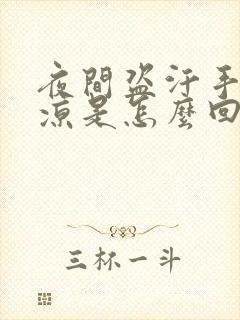 夜間盜汗手
涼是怎麼回
三杯一斗